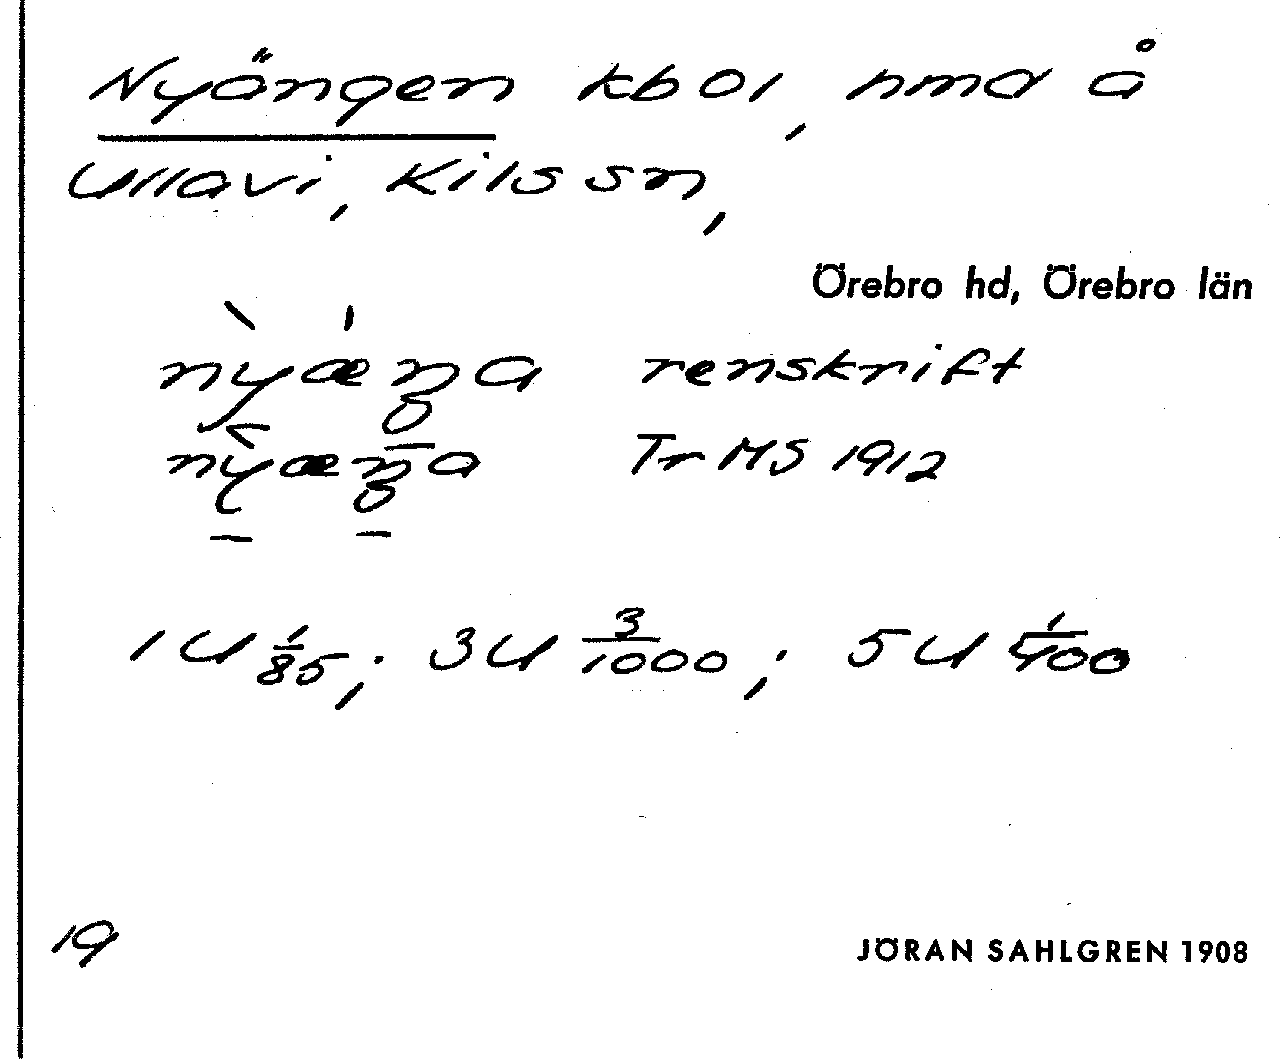 Nyängen kb 01, hmd å
Ullavi, Kils sn,
Örebro hd, Örebro län
nỳǽŋa renskrift
nỳæŋa Tr MS 1912
1 U 1/85; 3 U 3/1000; 5 U 1/400
19
JÖRAN SAHLGREN 1908